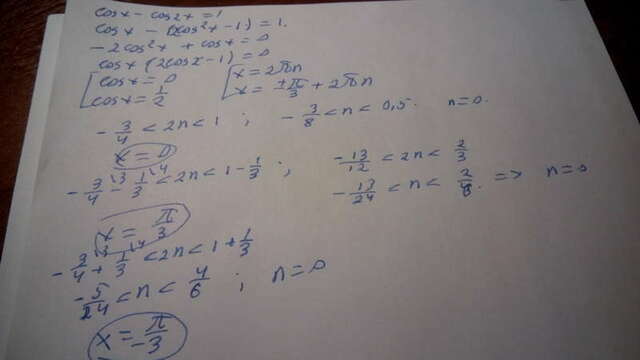 cosx - cos2x = 1
cosx - (2cos²x - 1) = 1.
-2cos²x + cosx = 0
cosx (2cosx - 1) = 0
[cosx = 0 [x = 2πn
cosx = 1/2 x = ±π/3 + 2πn
-3/4 < 2n < 1 ; -3/8 < n < 0,5. n = 0.
x = 0
-3/4 - 1/3 < 2n < 1 - 1/3 ; -13/12 < 2n < 2/3
-13/24 < n < 2/6. => n = 0
x = π/3
-3/4 + 1/3 < 2n < 1 + 1/3
-5/24 < n < 4/6 ; n = 0
x = -π/3